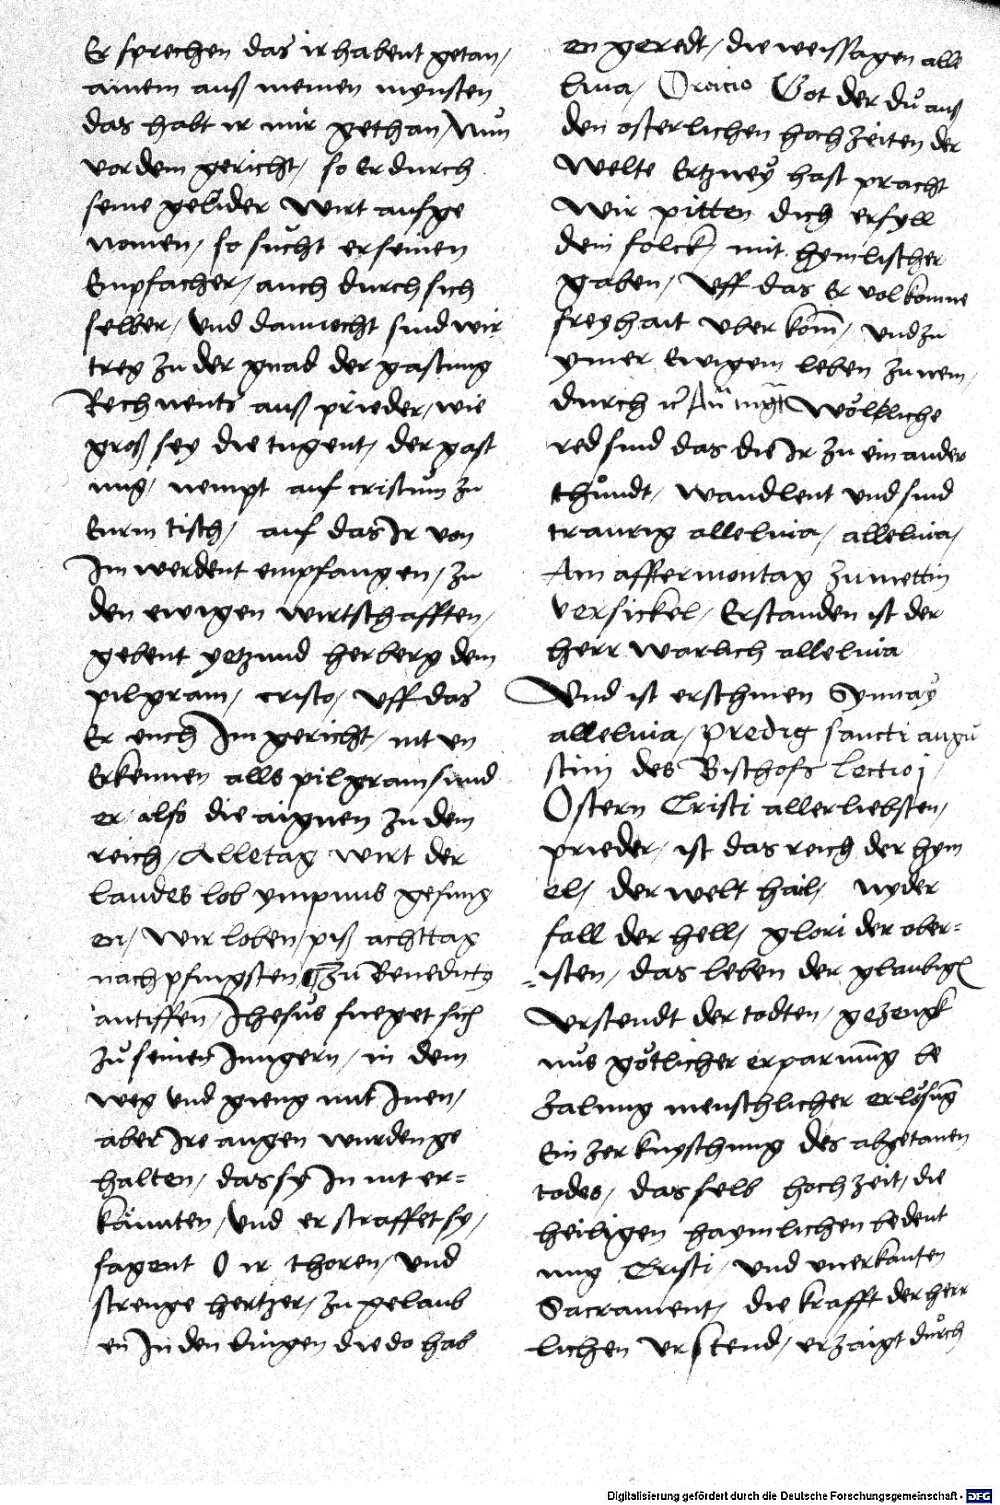 Er sprechen das ir habent getan,
ainem auß meinen mynsten
das habt ir mir gethan, Nun
vor dem gericht, so Er durch
seine gelider Wirt aufge
nomen, so sucht er seinen
Empfacher, auch durch sich
selber, Und dannocht sind wir
treg zu der gnad der gastung
Rechnents auß prieder, wie
groß sey die tugent, der gast
ung, nempt auf cristum zu
Eurm tisch, auf das Ir von
Im werdent empfangen, zu
den ewigen wirtschafften,
gebent yetzund herberg dem
pilgram, cristo, Uff das
Er euch Im gericht, nit un
Erkennen alls pilgram sunnd
er also die aignen zu dem
reich, Alletag wirt der
laudes lob ympnus gesung
en, Wir loben, piß achttag
nach pfingsten Zu Benedictus
antiffen, Jhesus fueget sich
zu seinen Jungern, in dem
weg Und gieng mit Inen,
aber Ire augen wurden ge
halten, das sy In nit er=
kannten, Und er straffet sy,
sagent O ir thoren, Und
strenge hertzer, zu gelaub
en In den dingen die do hab
en geredt, die weissagen alle
luia, Oracio Got der du auß
den osterlichen hochzeiten der
Welte Ertzney hast pracht
Wir pitten dich erfyll
dein folck, mit hymlischer
gaben, Uff das Er volkomne
freyhait uberkom, und zu
ymer Ewigem leben zunem,
durch Wölliche
red sind das die Ir zu ein ander
thundt, wandlent und sind
traurig alleluia, alleluia,
Am afftermontag zu mettin
versickel, Erstanden ist der
herr warlich alleluia
Und ist erschinen Symay
alleluia, Predig sancti augu
stini des Bischofs Lectio j
Ostern Cristi allerliebsten,
prieder, ist das reich der hym
el, der welt hail, nyder
fall der hell, glori der ober=
=isten, das leben der glaubigen
Urstendt der todten, gezeugk
nus götlicher erparmung be
zalung menschlicher erlösung
Ein zerknyschung des abgetanen
todes, das selb hochzeit, die
heiligen haymlichen bedeut
ung Cristi, und unerkanten
Sacrament, die krafft der herr
lichen Urstend, erzaigt durch
Digitalisierung gefördert durch die Deutsche Forschungsgemeinschaft - DFG